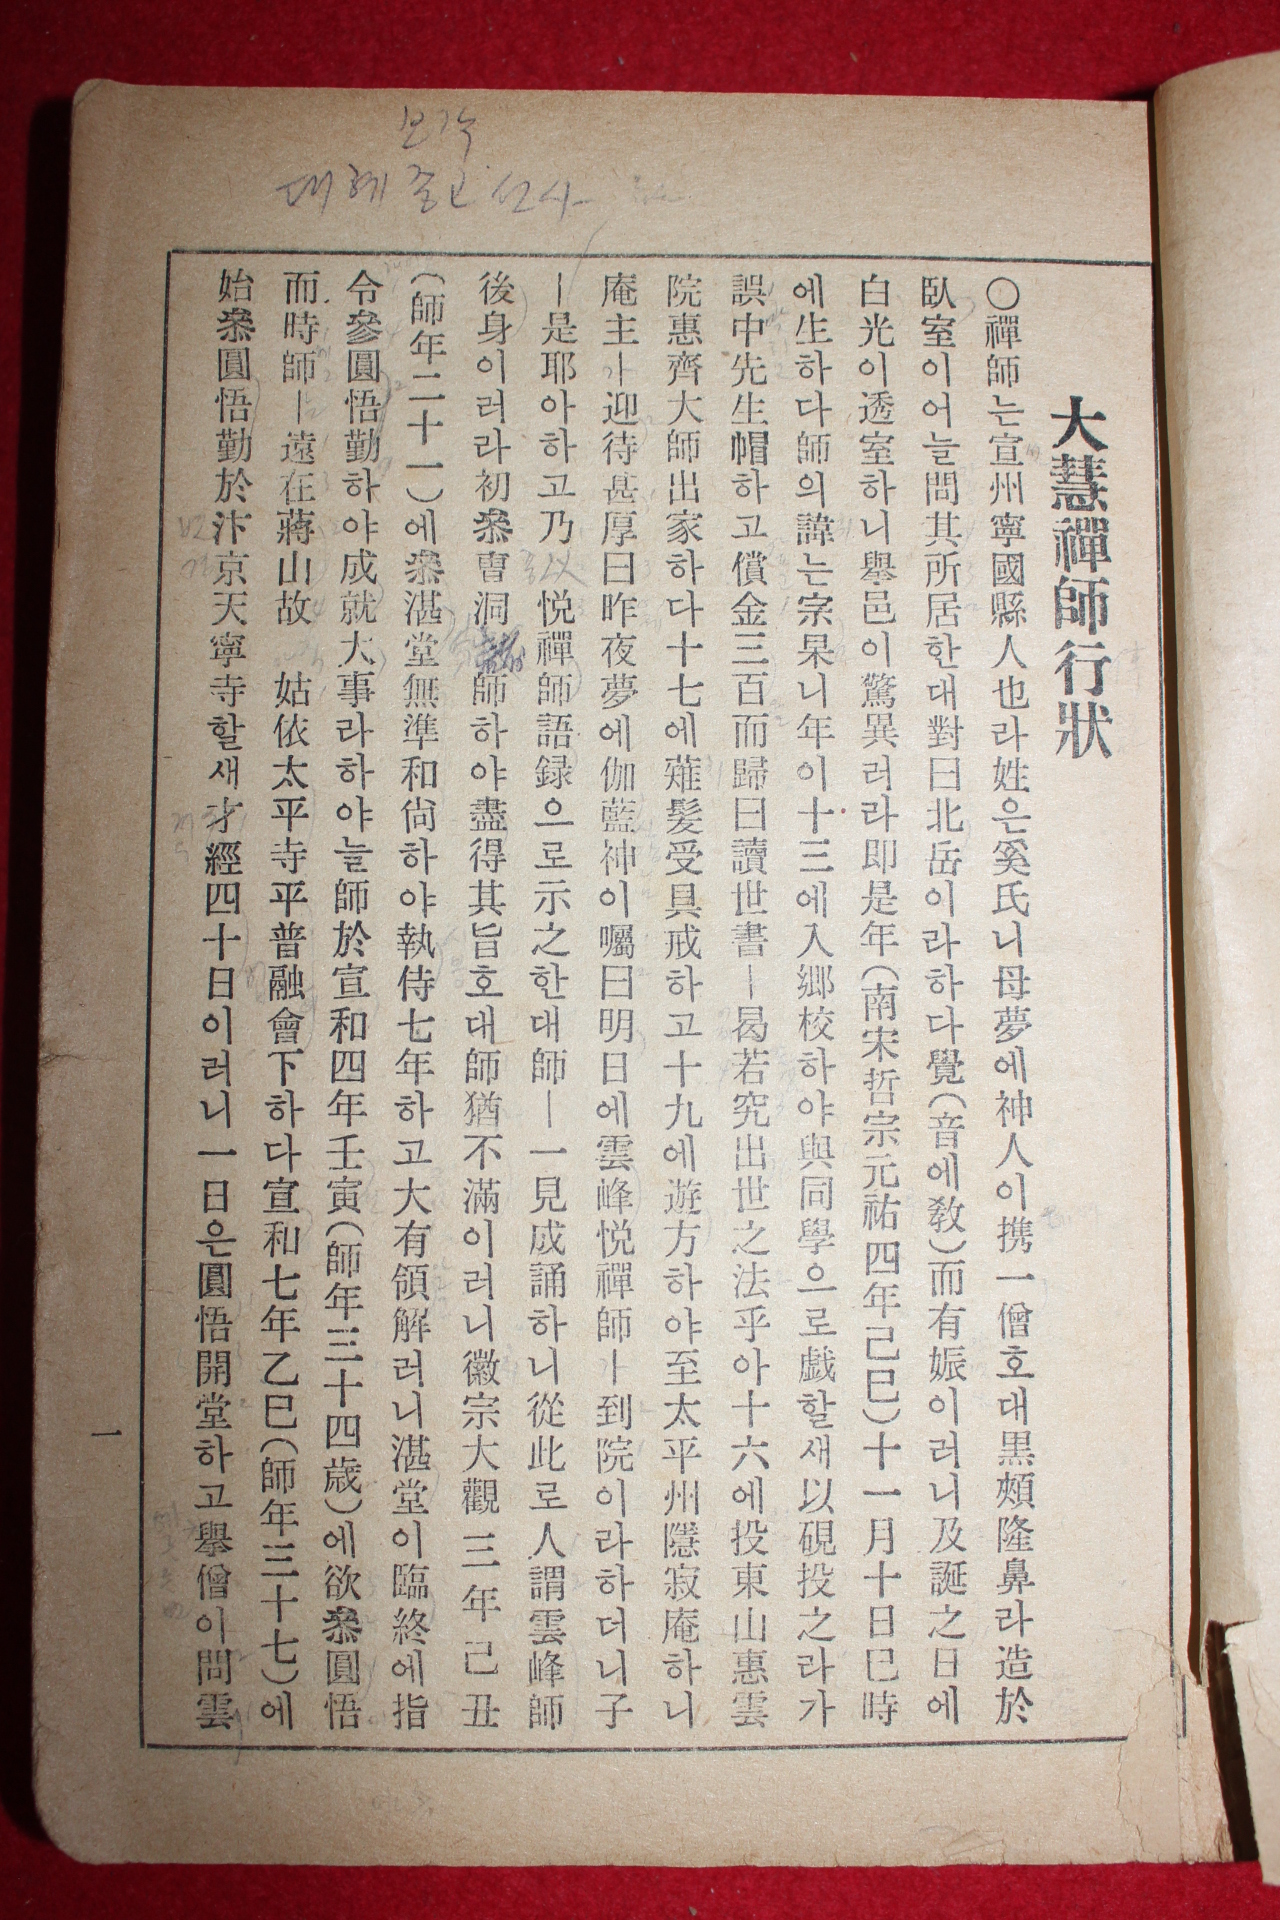 보각
대혜 종고 선사
大慧禪師行狀
○禪師는宣州寧國縣人也라姓은奚氏니母夢에神人이携一僧호대黑頰隆鼻라造於
臥室이어늘問其所居한대對曰北岳이라하다覺(音에敎)而有娠이러니及誕之日에
白光이透室하니擧邑이驚異러라即是年(南宋哲宗元祐四年己巳)十一月十日巳時
에生하다師의諱는宗杲니年이十三에入鄕校하야與同學으로戱할새以硯投之라가
誤中先生帽하고償金三百而歸曰讀世書ㅣ曷若究出世之法乎아十六에投東山惠雲
院惠齊大師出家하다十七에薙髮受具戒하고十九에遊方하야至太平州隱寂庵하니
庵主ㅏ迎待甚厚曰昨夜夢에伽藍神이囑曰明日에雲峰悅禪師ㅏ到院이라하더니子
ㅣ是耶아하고乃 悅禪師語録으로示之한대師ㅣ一見成誦하니從此로人謂雲峰師
後身이러라初叅曺洞 師하야盡得其旨호대師猶不滿이러니徽宗大觀三年己丑
(師年二十一)에叅湛堂無準和尙하야執侍七年하고大有領解러니湛堂이臨終에指
令參圓悟勤하야成就大事라하야늘師於宣和四年壬寅(師年三十四歲)에欲叅圓悟
而時師ㅣ遠在蔣山故 姑依太平寺平普融會下하다宣和七年乙巳(師年三十七)에
始叅圓悟勤於汴京天寧寺할새才經四十日이러니一日은圓悟開堂하고擧僧이問雲
一